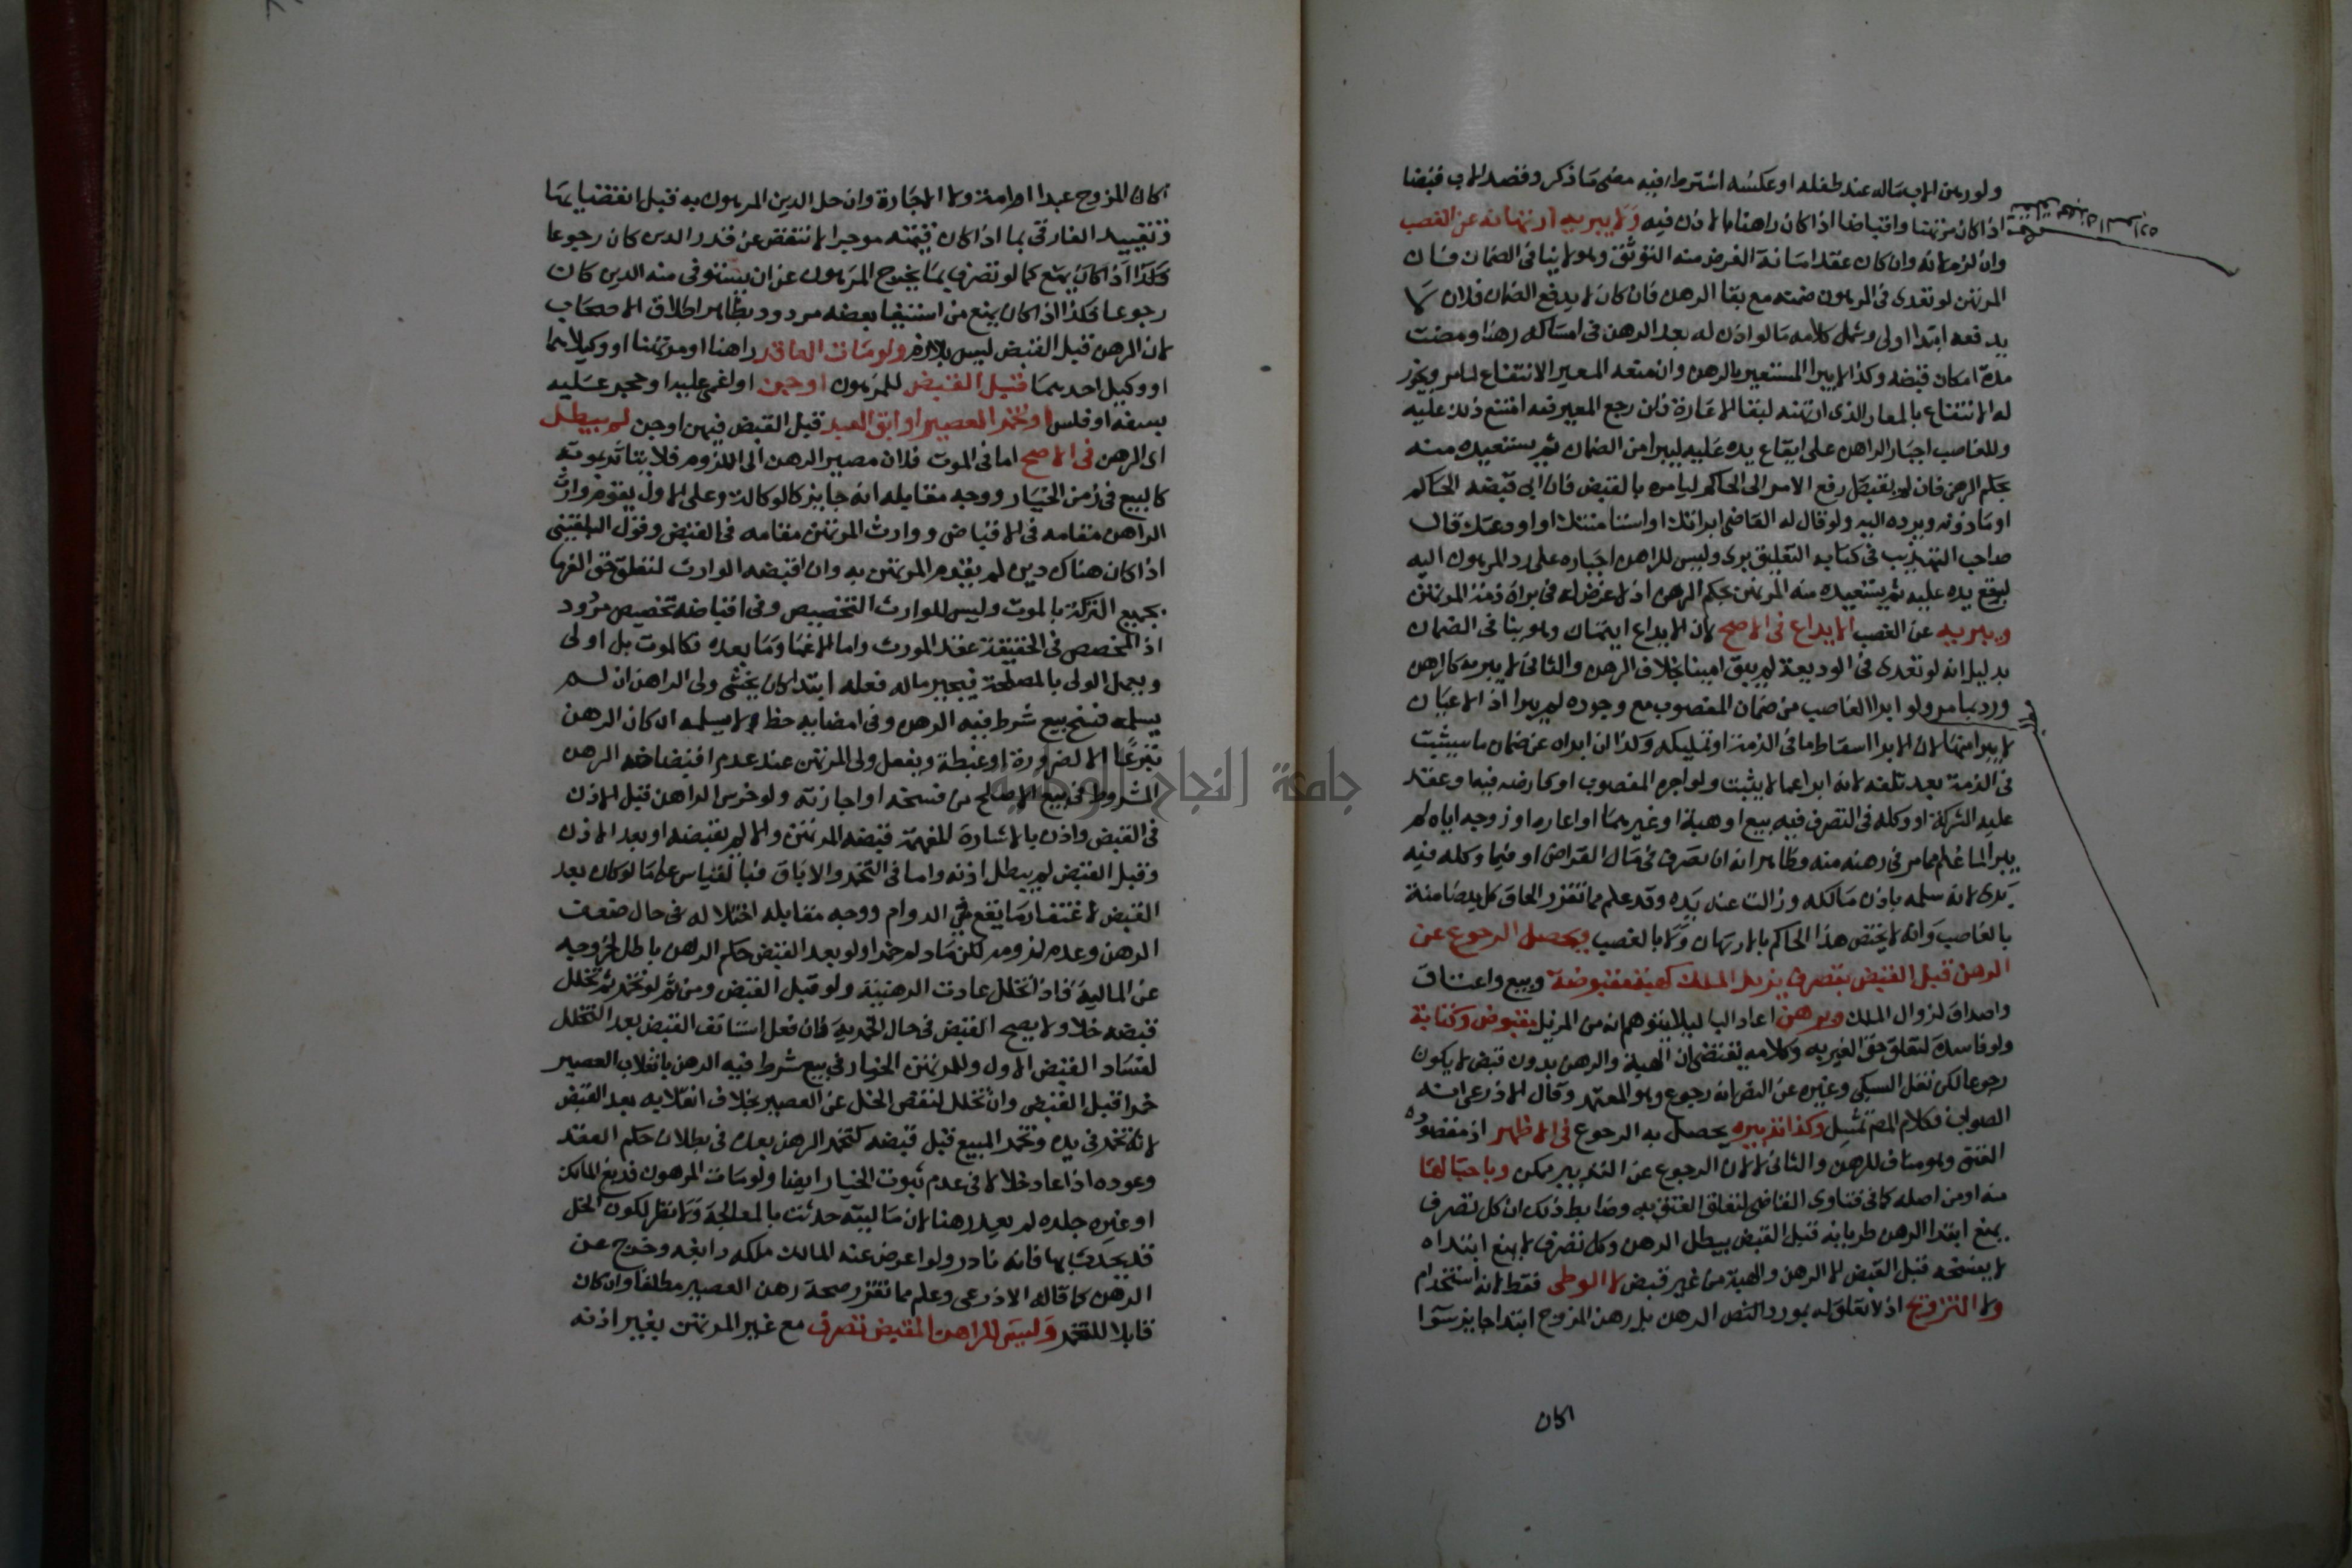 ولو رهن الاب ماله عند طفله او عكسه اشترط فيه مضى ما ذكر وقصد الاب قبضا
اذا كان مرتهنا واقباضا اذا كان راهنا كالاذن فيه ولا يبريه ارتهانه عن الغصب
وان لزم لانه وان كان عقد امانة الغرض منه التوثق وهو لا ينافى الضمان فان
المرتهن لو تعدى فى المرهون ضمنه مع بقا الرهن فان كان لا يدفع الضمان فلان لا
يدفعه ابتدا اولى وشمل كلامه ما لو اذن له بعد الرهن فى امساكه رهنا ومضت
مدة امكان قبضه وكذا لا يبرا المستعير بالرهن وان منعه المعير الانتفاع لما مر ويجوز
له الانتفاع بالمعار الذى ارتهنه لبقا الاعارة فان رجع المعير فيه امتنع ذلك عليه
وللغاصب اجبار الراهن على ايقاع يده عليه ليبرا من الضمان ثم يستعيده منه
بحكم الرهن فان لم يقبض رفع الامر الى الحاكم ليامره بالقبض فان ابى قبضه الحاكم
او ماذونه ويرده اليه ولو قال له القاضى ابراتك او استامنتك او اودعتك قال
صاحب التهذيب فى كتابه التعليق برى وليس للراهن اجباره على رد المرهون اليه
ليوقع يده عليه ثم يستعيده منه المرتهن بحكم الرهن اذ لا غرض له فى براة ذمة المرتهن
ويبريه عن الغصب الايداع فى الاصح لان الايداع ايتمان وهو ينا فى الضمان
بدليل انه لو تعدى فى الوديعة لم يبق امينا بخلاف الرهن والثانى لا يبريه كالرهن
ورد بما مر ولو ابرا الغاصب من ضمان المغصوب مع وجوده لم يبرا اذ الاعيان
لا يبرا منها لان الابرا اسقاط ما فى الذمة او تمليكه وكذا ان ابراه عن ضمان ما يثبت
فى الذمة بعد تلفه لانه ابرا عما لا يثبت ولو اجره المغصوب او قارضه فيه او عقد
عليه الشركة او وكله فى التصرف فيه ببيع او هبة او غيرهما او اعاره او زوجه اياه لم
يبرا لما علم مما مر فى رهنه منه وظاهر انه ان تصرف فى مال القراض او فيما وكله فيه
برى لانه سلمه باذن مالكه وزالت عنه يده وقد علم مما تقرر الحاق كل يد ضامنة
بالغاصب وانه لا يختص هذا الحكم بالارتهان ولا بالغصب ويحصل الرجوع عن
الرهن قبل القبض بتصرف يزيل الملك كهبة مقبوضة وبيع واعتاق
واصداق لزوال الملك وبرهن اعاد البا ليلا يتوهم انه من المزيل مقبوض وكتابة
ولو فاسدة لتعلق حق الغير به وكلامه يقتضى ان الهبة والرهن بدون قبض لا يكون
رجوعا لكن نقل السبكى وغيره عن النص انه رجوع وهو المعتمد وقال الاذرعى انه
الصواب فكلام المص تمثيل وكذا تدبيره يحصل به الرجوع فى الاظهر اذ مقصوده
العتق وهو مناف للرهن والثانى لا لان الرجوع عن التدبير ممكن وباحبالها
منه او من اصله كما فى فتاوى القاضى لتعلق العتق به وضابط ذلك ان كل تصرف
يمنع ابتدا الرهن طريانه قبل القبض يبطل الرهن وكل تصرف لا يمنع ابتداه
لا يفسخه قبل القبض الا الرهن والهبة من غير قبض لا الوطى فقط لانه استخدام
ولا التزويج اذ لا تعلق له بمورد النص الرهن بل رهن المزوج ابتدا جايز سوا
اكان
اكان المزوج عبدا ام امة ولا الاجارة وان حل الدين المرهون به قبل انقضا يها
وتقييد الفارقى بما اذا كان قيمته موجرا لا تنقص عن قدر الدين كان رجوعا
هكذا اذا كان يمنع كما لو تصرف بما يخرج المرهون عن ان يستوفى منه الدين كان
رجوعا فكذا اذا كان يمنع من استيفا بعضه مردود بظاهر اطلاق الاصحاب
لان الرهن قبل القبض ليس بلازم ولو مات العاقد راهنا او مرتهنا او وكيلاهما
او وكيل احدهما قبل القبض للمرهون او جن او اغمى عليه او حجر عليه
بسفه او فلس او تخمر العصير او ابق العبد قبل القبض فيهن او جن لم يبطل
اى الرهن فى الاصح اما فى الموت فلان مصير الرهن الى اللزوم فلا يتاثر بموته
كالبيع فى زمن الخيار ووجه مقابله انه جايز كالوكالة وعلى الاول يقوم وارث
الراهن مقامه فى الاقباض ووارث المرتهن مقامه فى القبض وقول البلقينى
اذا كان هناك دين لم يقدم المرتهن به وان اقبضه الوارث لتعلق حق الغرما
بجميع التركة بالموت وليس للوارث التخصيص وفى اقباضه تخصيص مردود
اذ المخصص فى الحقيقة عقد المورث واما الاغما وما بعده فكالموت بل اولى
ويعمل الولى بالمصلحة فيجيز ماله فعله ابتدا كان يخشى ولى الراهن ان لم
يسلمه فسخ بيع شرط فيه الرهن وفى امضايه حظ ولا يسلمه ان كان الرهن
تبرعا الا لضرورة او غبطة ويفعل ولى المرتهن عند عدم اقباضه الرهن
المشروط فى بيع الاصلح من فسخه او اجازته ولو خرس الراهن قبل الاذن
فى القبض واذن بالاشارة المفهمة قبضه المرتهن والا لم يقبضه او بعد الاذن
وقبل القبض لم يبطل اذنه واما فى التخمر والاباق فبالقياس على ما لو كان بعد
القبض لاغتفار ما يقع فى الدوام ووجه مقابله اختلاله فى حال ضعف
الرهن وعدم لزومه لكن ما دام خمرا ولو بعد القبض حكم الرهن باطل لخروجه
عن المالية فاذا تخلل عادت الرهنية ولو قبل القبض ومن ثم لو تخمر ثم تخلل
قبضه خلا ولا يصح القبض فى حال الخمرية فان فعل استانف القبض بعد التخلل
لفساد القبض الاول وللمرتهن الخيار فى بيع شرط فيه الرهن بانقلاب العصير
خمرا قبل القبض وان تخلل لنقص الخل عن العصير بخلاف انقلابه بعد القبض
لانه تخمر فى يده وتخمر المبيع قبل قبضه كتخمر الرهن بعده فى بطلان حكم العقد
وعوده اذا عاد خلا لا فى عدم ثبوت الخيار ايضا ولو مات المرهون فدبغ المالك
او غيره جلده لم يعد رهنا لان ماليته حدثت بالمعالجة ولا نظر لكون الخل
قد يحدث بها فانه نادر ولو اعرض عنه المالك ملكه دابغه وخرج عن
الرهن كما قاله الاذرعى وعلم مما تقرر صحة رهن العصير مطلقا وان كان
قابلا للتخمر وليس للراهن المقبض تصرف مع غير المرتهن بغير اذنه
جامعة النجاح الوطنية